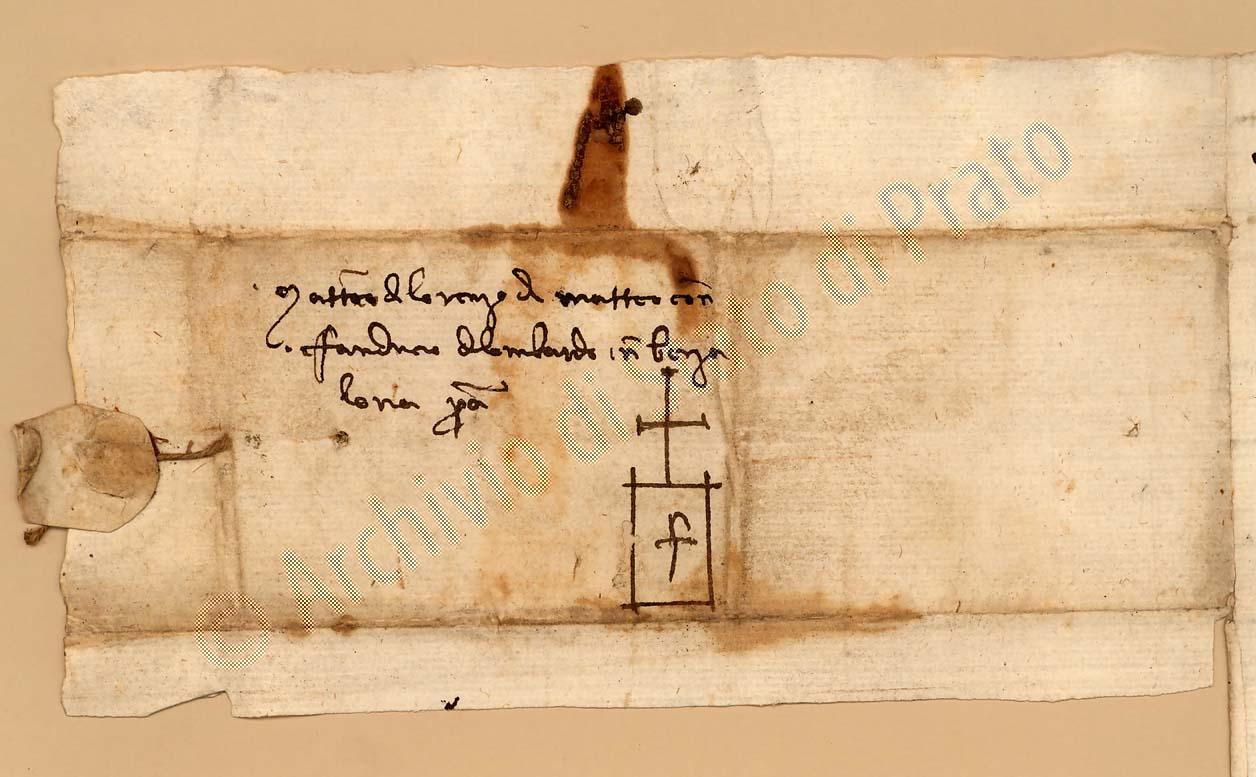 Matteo di lorenzo di matteo con
franducio di lombardo in barza
lona p̱a
f
© Archivio di Stato di Prato